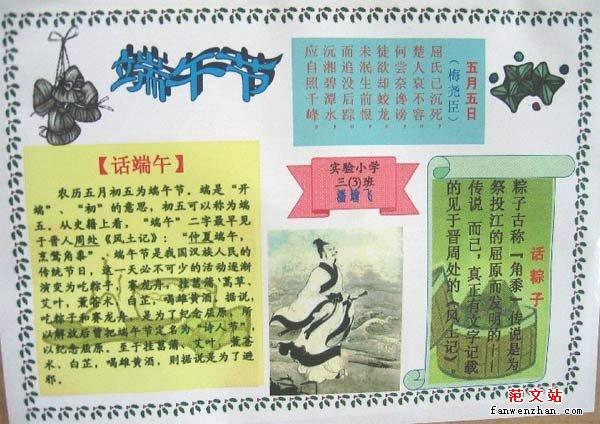 端午节
五月五日
（梅尧臣）
屈氏已沉死，
楚人哀不容。
何尝奈谗谤，
徒欲却蛟龙。
未泯生前恨，
而追没后踪。
沅湘碧潭水，
应自照千峰。
【话端午】
农历五月初五为端午节。端是“开
端”、“初”的意思，初五可以称为端
五。从史籍上看，“端午”二字最早见
于晋人周处《风土记》：“仲夏端午，
烹鹜角黍” 端午节是我国汉族人民的
传统节日，这一天必不可少的活动逐渐
演变为吃粽子，赛龙舟，挂菖蒲、蒿草、
艾叶，薰苍术、白芷，喝雄黄酒。据说，
吃粽子和赛龙舟，是为了纪念屈原，所
以解放后曾把端午节定名为“诗人节”，
以纪念屈原。至于挂菖蒲、艾叶，薰苍
术、白芷，喝雄黄酒，则据说是为了避
邪。
实验小学
三(3)班
话粽子
粽子古称『角黍』传说是为
祭投江的屈原而发明的┅
传说 而已，真正有文字记载
的见于晋周处的《风土记》。
范文站
fanwenzhan.com